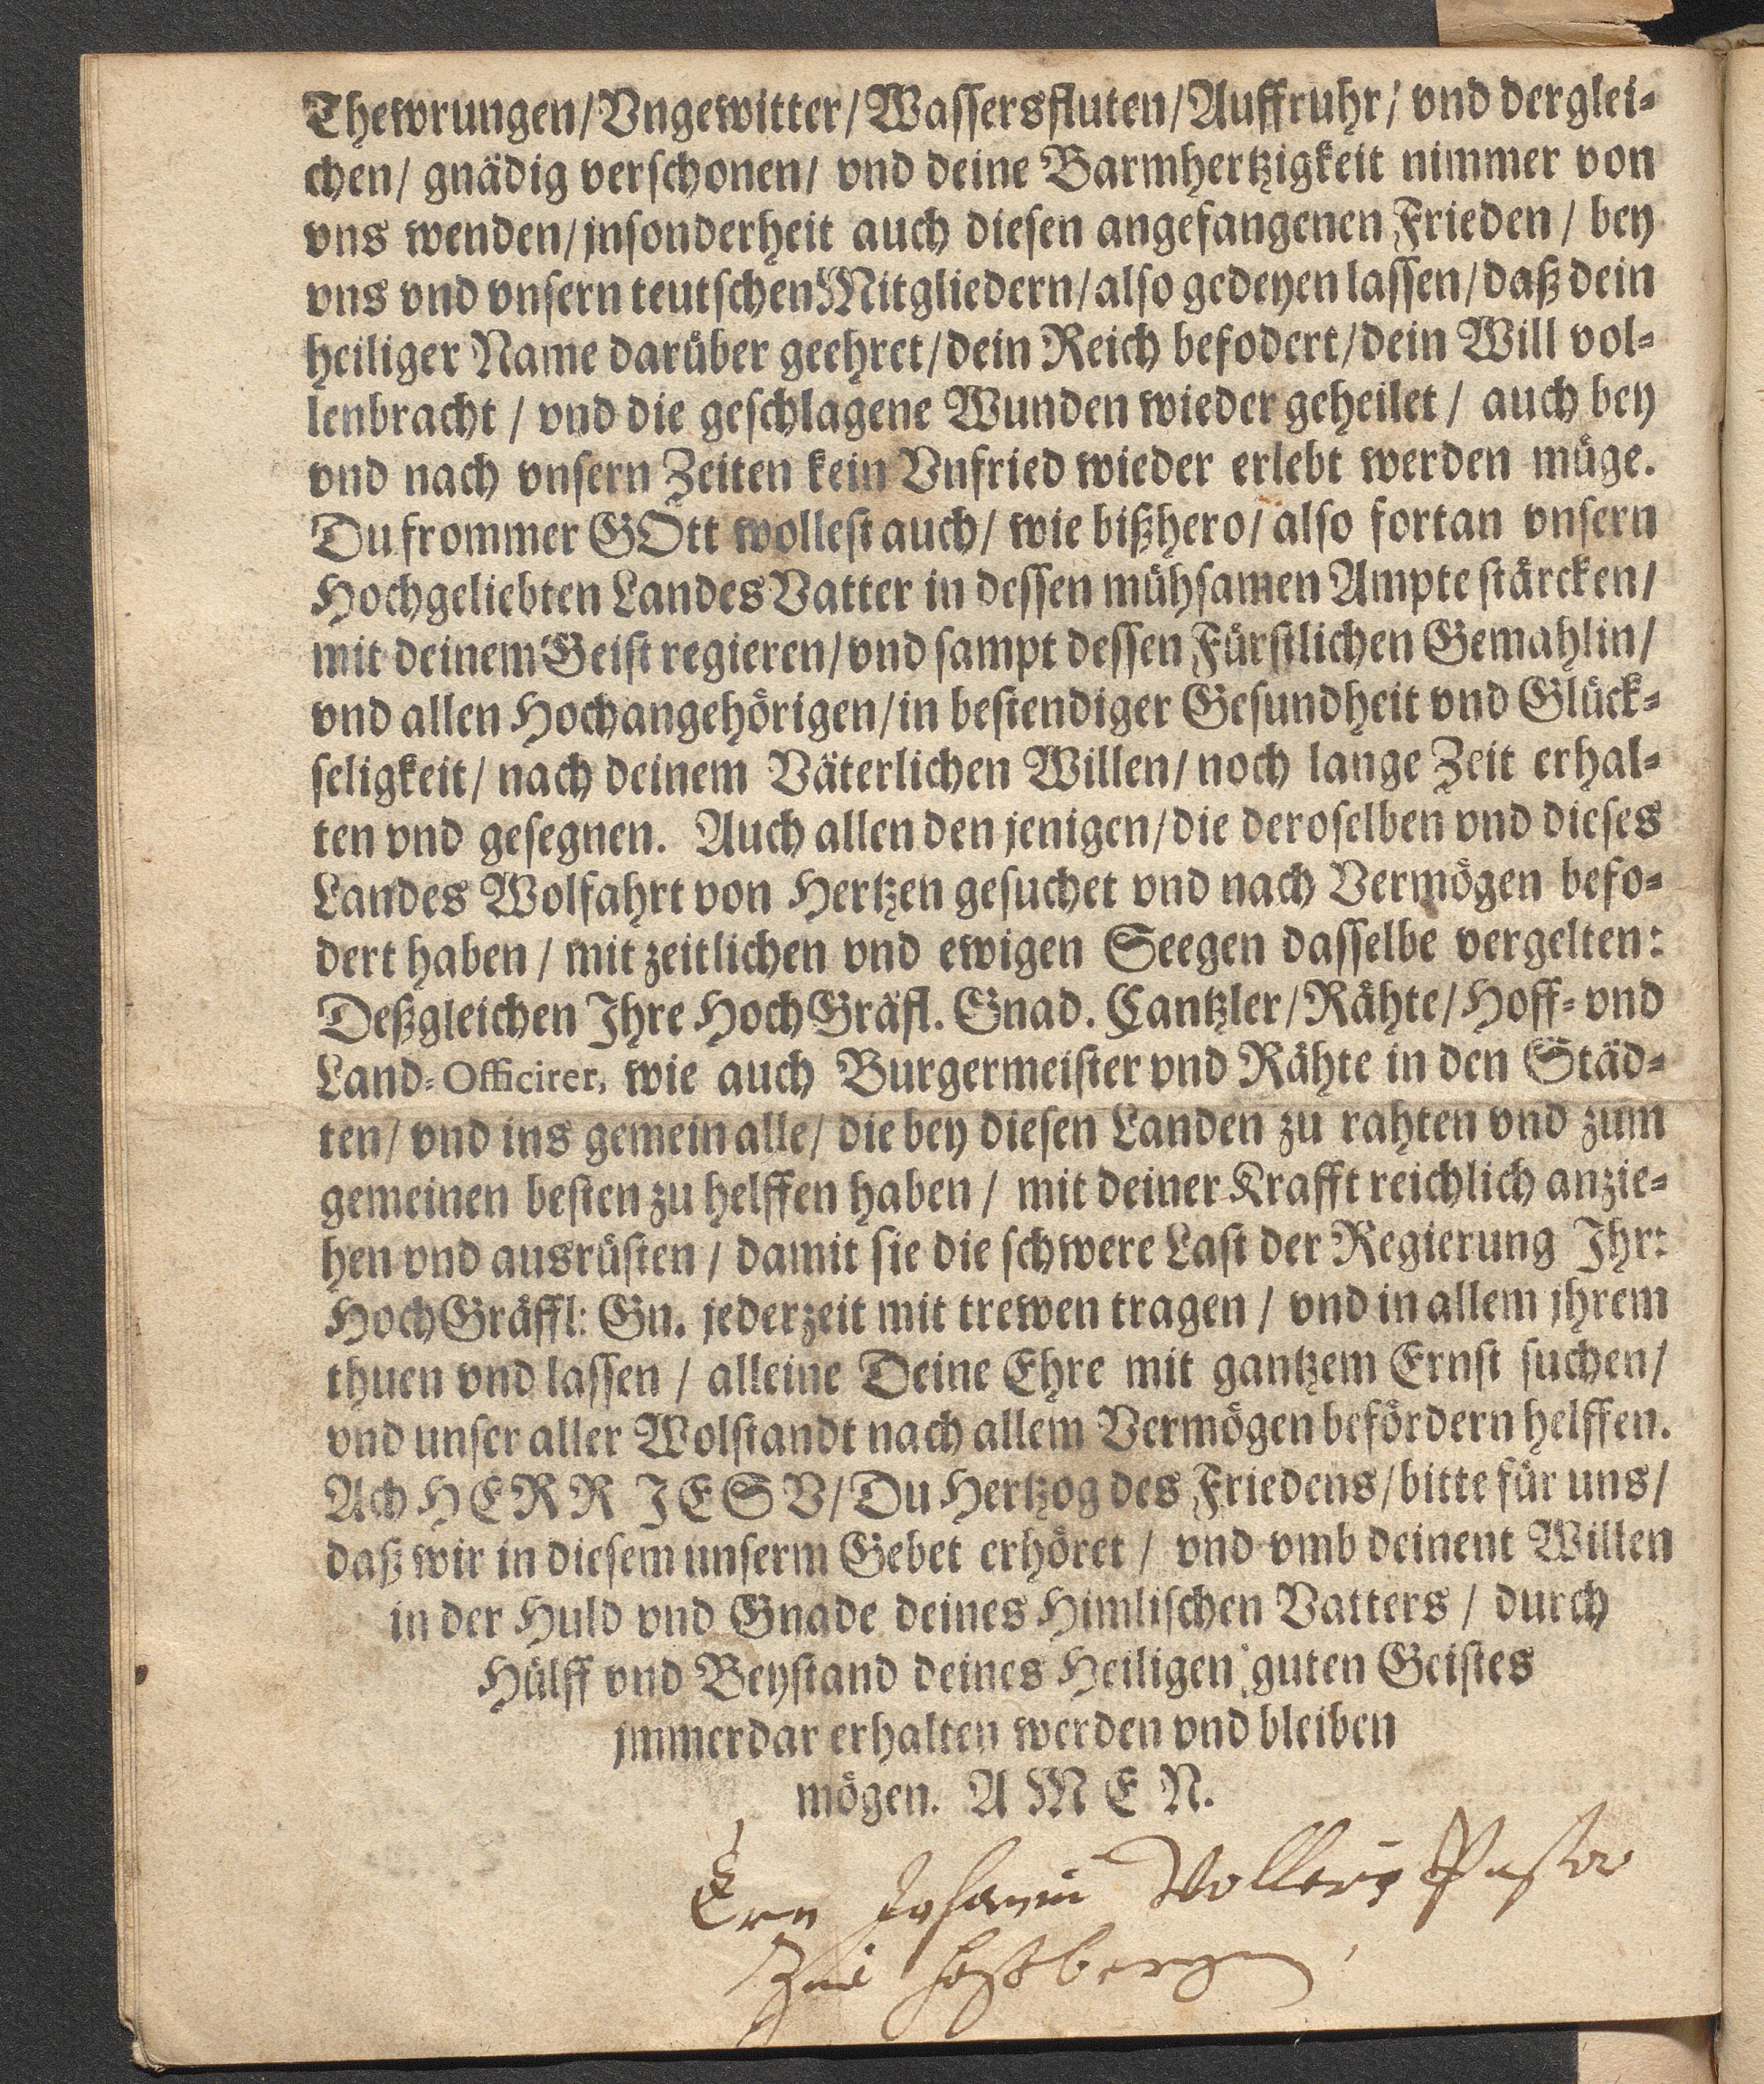 Thewrungen/Vngewitter/Wassersfluten/Auffruhr/ vnd derglei-
chen/ gnädig verschonen/ vnd deine Barmhertzigkeit nimmer von
vns wenden/ jnsonderheit auch diesen angefangenen Frieden / bey
vns vnd vnsern teutschen Mitgliedern/also gedeyen lassen/daß dein
heiliger Name darüber geehret/dein Reich befodert/dein Will vol-
lenbracht / vnd die geschlagene Wunden wieder geheilet / auch bey
vnd nach vnsern Zeiten kein Vnfried wieder erlebt werden müge.
Du frommer GOtt wollest auch/ wie bißhero/ also fortan vnsern
Hochgeliebten Landes Vatter in dessen mühsamen Ampte stärcken/
mit deinem Geist regieren/vnd sampt dessen Fürstlichen Gemahlin/
vnd allen Hochangehörigen/in bestendiger Gesundheit vnd Glück-
seligkeit/ nach deinem Väterlichen Willen/ noch lange Zeit erhal-
ten vnd gesegnen. Auch allen den jenigen/die deroselben vnd dieses
Landes Wolfahrt von Hertzen gesuchet vnd nach Vermögen befo-
dert haben / mit zeitlichen vnd ewigen Seegen dasselbe vergelten:
Deßgleichen Ihre Hoch Gräfl. Gnad. Cantzler/Rähte/Hoff- vnd
Land-Officirer, wie auch Burgermeister vnd Rähte in den Städ-
ten/ vnd ins gemein alle/ die bey diesen Landen zu rahten vnd zum
gemeinen besten zu helffen haben / mit deiner Krafft reichlich anzie-
hen vnd ausrüsten / damit sie die schwere Last der Regierung Ihr:
HochGräffl: Gn. jederzeit mit trewen tragen / vnd in allem jhrem
thuen vnd lassen / alleine Deine Ehre mit gantzem Ernst suchen/
vnd unser aller Wolstandt nach allem Vermögen befördern helffen.
Ach HERR JESV/Du Hertzog des Friedens/bitte für uns/
daß wir in diesem unserm Gebet erhöret / vnd vmb deinent Willen
in der Huld vnd Gnade deines Himlischen Vatters / durch
Hülff vnd Beystand deines Heiligen guten Geistes
jmmerdar erhalten werden vnd bleiben
mögen. AMEN.
Ern Johanni Vollers Pastor
zue